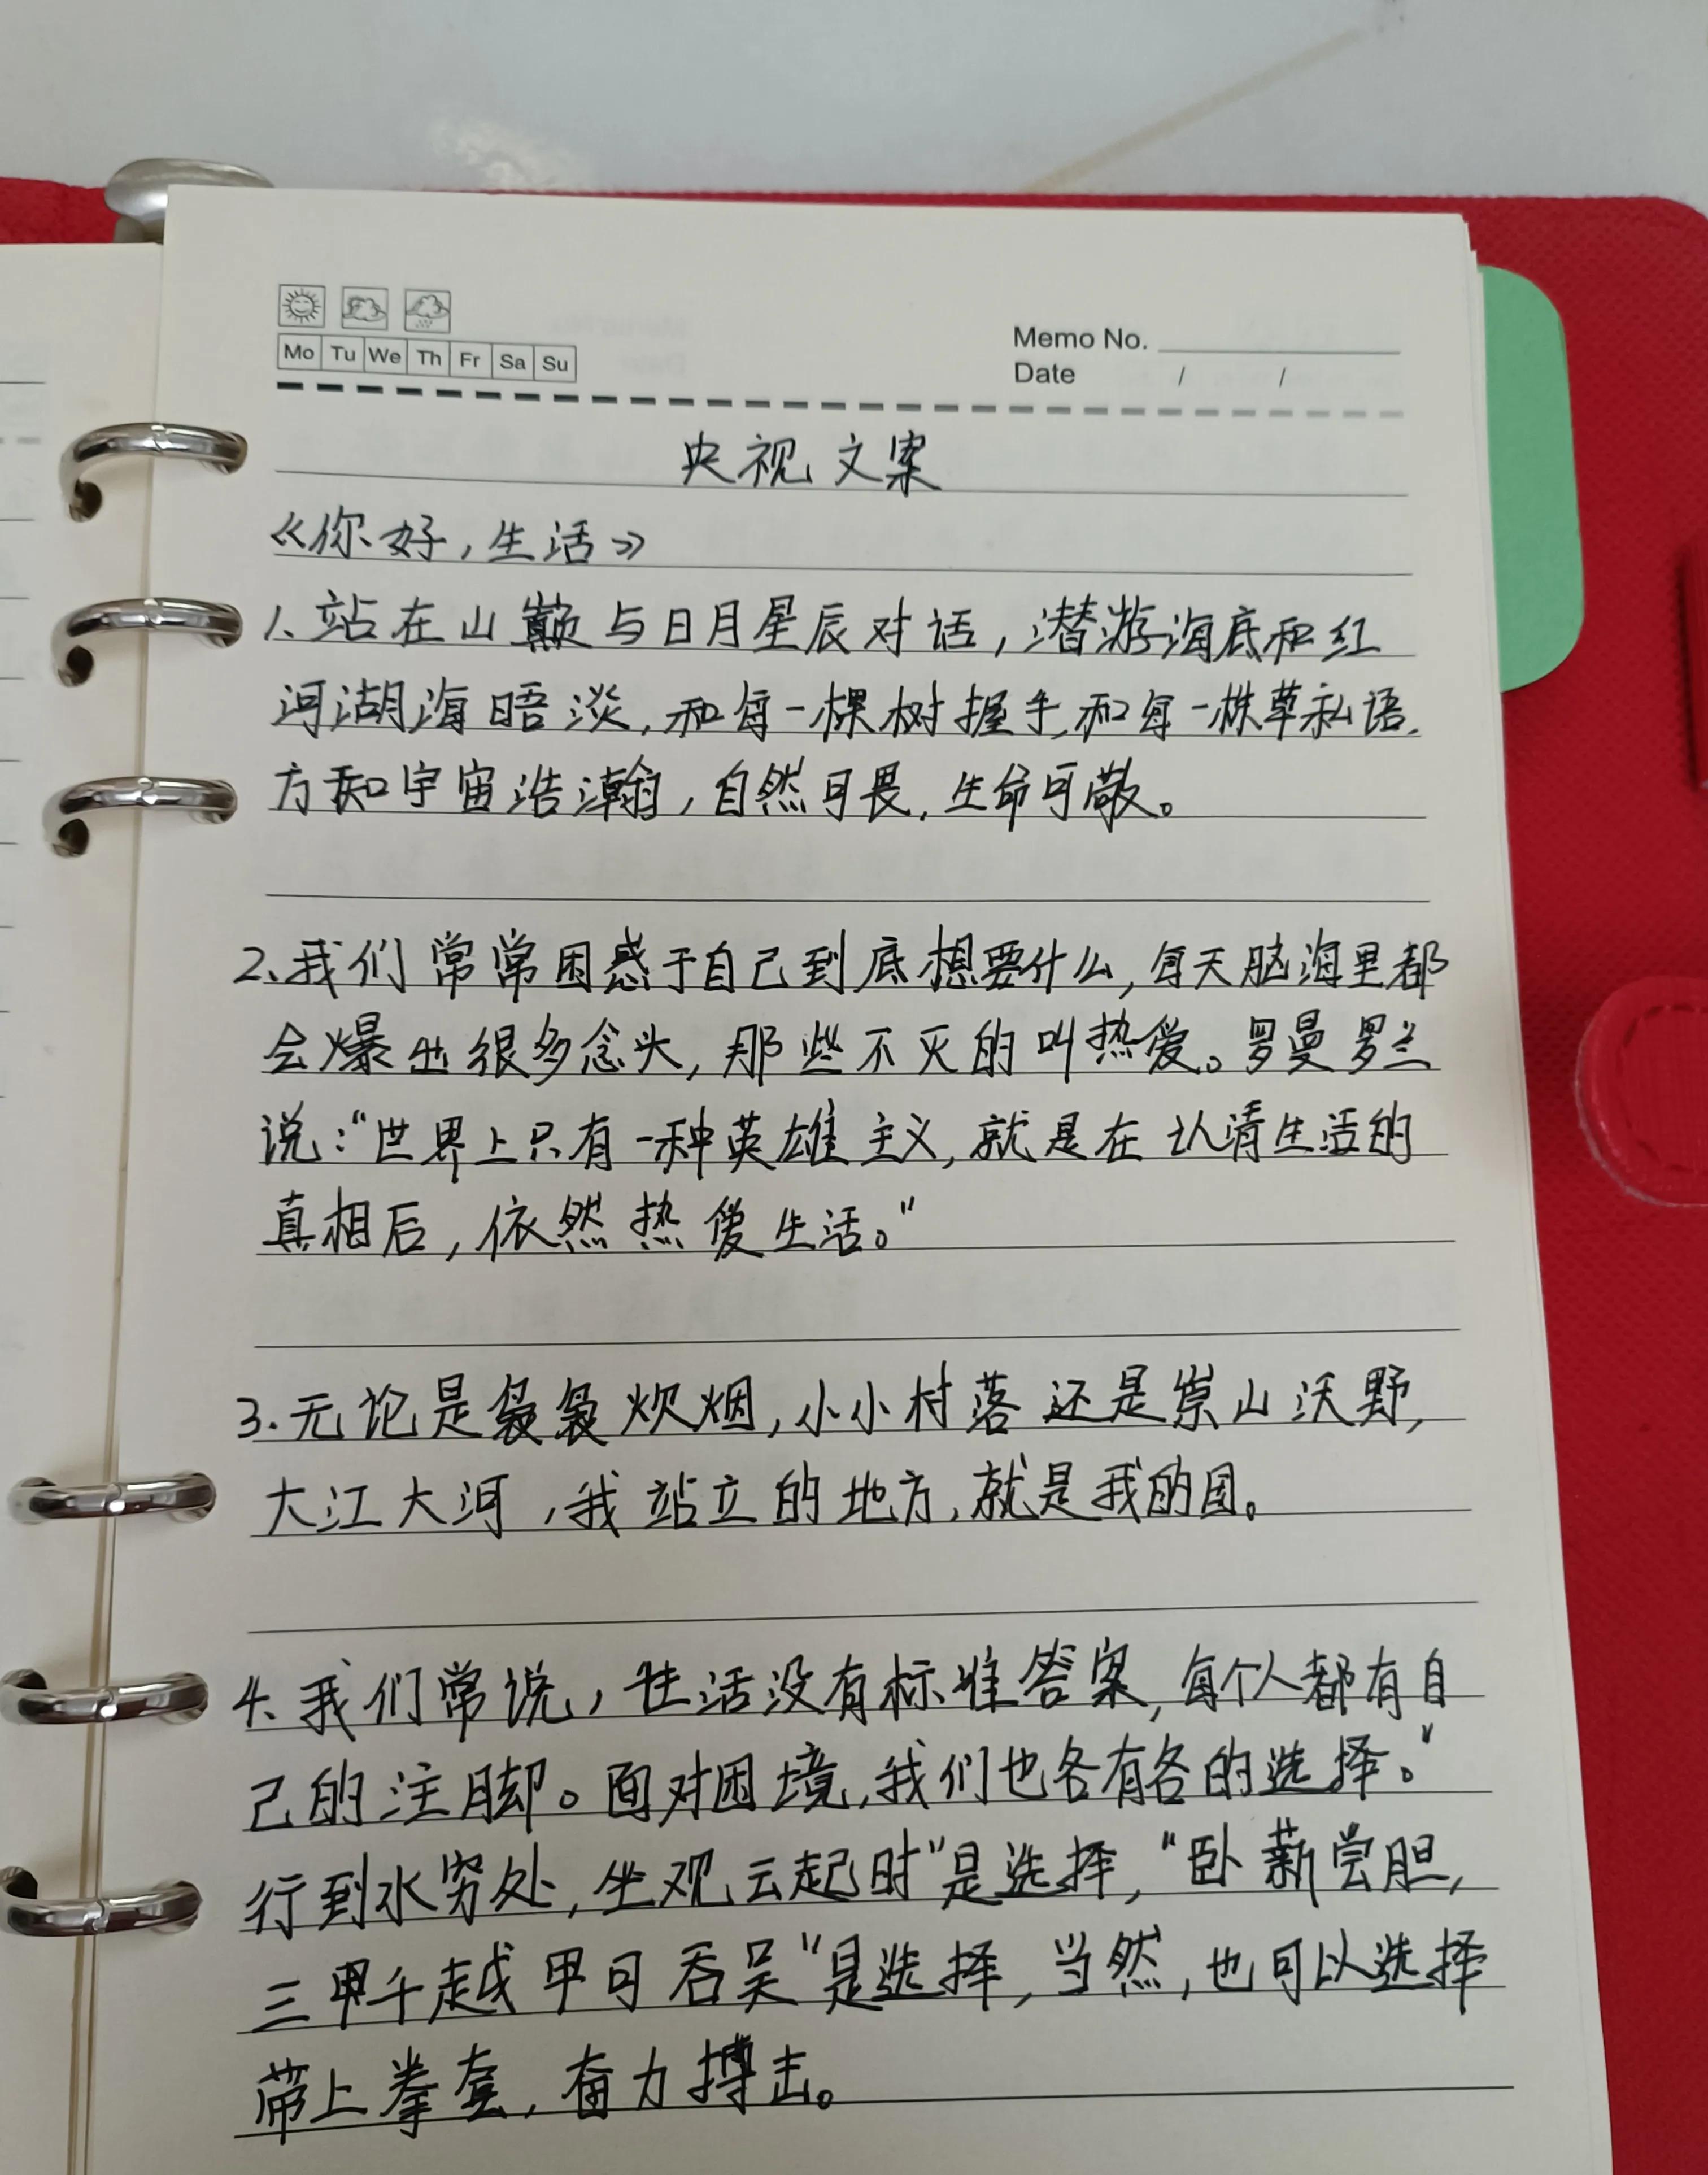 Mo Tu We Th Fr Sa Su
Memo No.
Date / /
央视文案
《你好,生活》
1、站在山巅与日月星辰对话,潜游海底和红
河湖海晤淡,和每一棵树握手,和每一株草私语.
方知宇宙浩瀚,自然可畏,生命可敬。
2、我们常常困惑于自己到底想要什么,每天脑海里都
会爆出很多念头,那些不灭的叫热爱。罗曼罗兰
说:“世界上只有一种英雄主义,就是在认清生活的
真相后,依然热爱生活。”
3.无论是袅袅炊烟,小小村落还是崇山沃野,
大江大河,我站立的地方,就是我的国。
4、我们常说,生活没有标准答案,每个人都有自
己的注脚。面对困境,我们也各有各的选择。“
行到水穷处,坐观云起时”是选择,“卧薪尝胆,
三甲千越甲可吞吴”是选择,当然,也可以选择
带上拳套,奋力搏击。